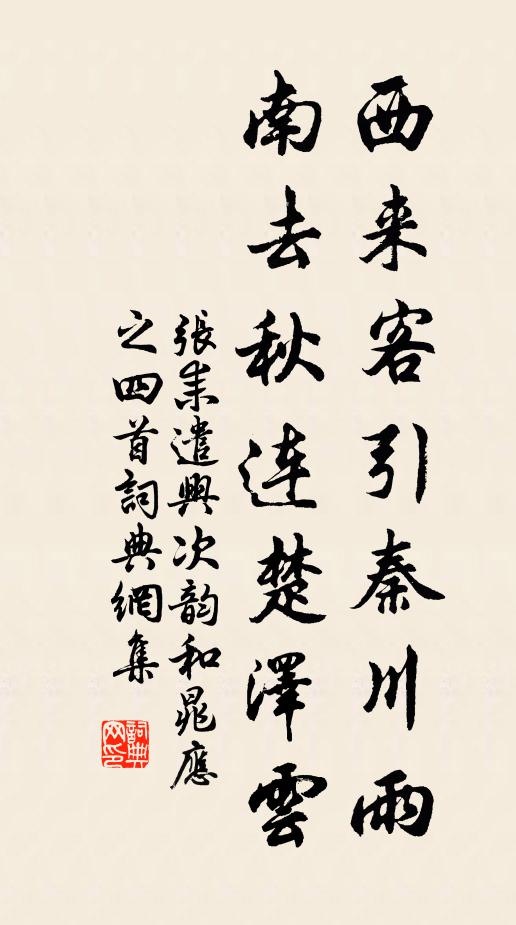 西来客引秦川雨
南去秋连楚澤雲
張耒遣興次韵和晁應
之四首詞典網集
詞典
网印